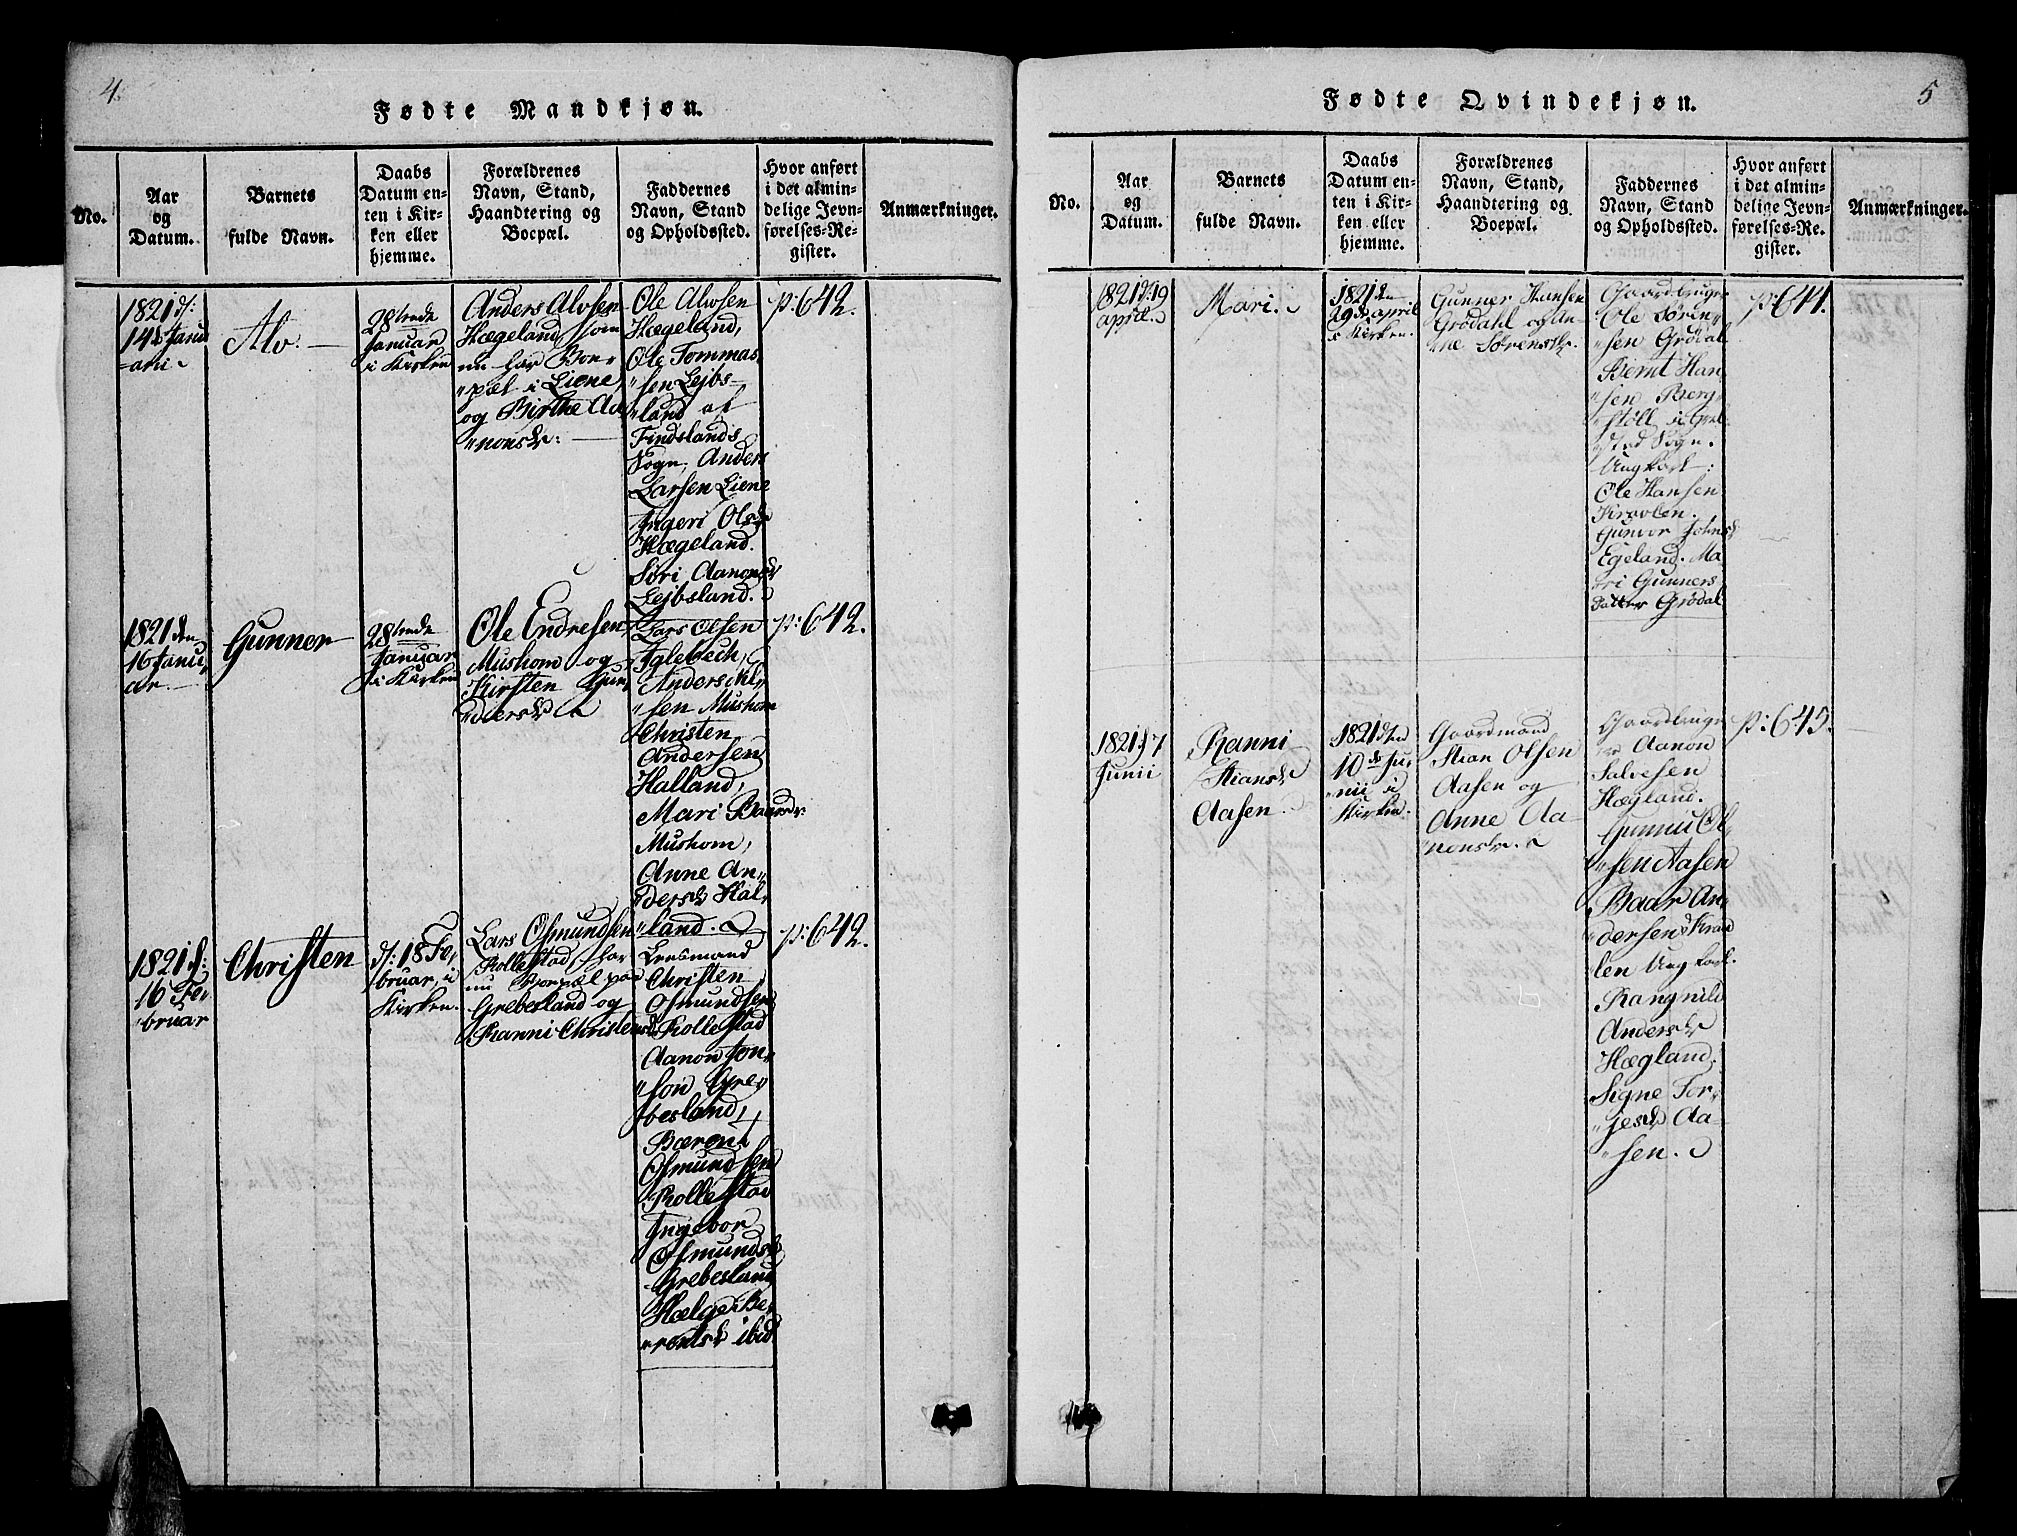 4.
Fødte Mandkjøn.
No.
Aar
og
Datum.
Barnets
fulde Navn.
Daabs
Datum en-
ten i Kir-
ken eller
hjemme.
Forældrenes
Navn, Stand,
Haandtering og
Boepæl.
Faddernes
Navn, Stand
og Opholdssted.
Hvor anført
i det almin-
delige Jevn-
førelses-Re-
gister.
Anmærkninger.
1821 d:
14de Janu
ari
Alv.
28tende
Januar
i Kirken
Anders Alvsen
Hægeland, som
nu har Boe-
pæl i Liene,
og Birthe Aa
nonsdr:
Ole Alvsen
Hægeland,
Ole Tommas
sen Lejbs-
land af
Findslands
Sogn, Anders
Larsen Liene
Ingeri Olsdr
Hægeland.
Siri Aanonsdr
Lejbsland.
p: 642.
1821 den
16 Janu
ar
Gunner
28tende
Januar
i Kirken
Ole Endresen
Mushom og
Kirsten Gun
dersdr
Lars Olsen
Iglebech,
Anders Al
sen Mushom
Christen
Andersen
Halland,
Mari Baarsdr.
Mushom,
Anne An
dersdr Hal
land.
p: 642.
1821 d:
16 Fe
bruar
Christen
d: 18 Fe
bruar i
Kirken.
Lars Osmundsen
Rollestad, har
nu Boepæl paa
Grebesland og
Ranni Christensdr
Lensmand
Christen
Osmundsen
Rollestad
Aanon Jon
son Gre
besland,
Bærent
Osmundsen
Rollestad
Ingebor
Osmundsdr
Grebesland
Hælge Be
rentsdr ibid
p: 642.
5
Fødte Qvindekjøn.
No.
Aar
og
Datum.
Barnets
fulde Navn.
Daabs
Datum en-
ten i Kir-
ken eller
hjemme.
Forældrenes
Navn, Stand,
Haandtering og
Boepæl.
Faddernes
Navn, Stand
og Opholdssted.
Hvor anført
i det almin-
delige Jevn-
førelses-Re-
gister.
Anmærkninger.
1821 d: 19
april.
Mari.
1821 den
29de april
i Kirken.
Gunner Hansen
Grødahl og An
ne Sørensdr.
Gaardbruger
Ole Sørin
sen Grødal
Bernt Han
sen Berg
støll i
Sogn.
Ungkarl:
Ole Hansen
Gunvor Johnsdr
Egeland. Ma
ri Gunners
Datter Grødal
p: 644.
1821 d 7
Junii
Ranni
Stiansdr
Aasen.
1821 den
10de Ju
nii i
Kirken.
Gaardmand
Stian Olsen
Aasen og
Anne Aa
nonsdr.
Gaardbruge
r Aanon
Salvesen
Hægland.
Gunnu Ol
sen Aasen
Baar An
dersen Kraa
len Ungkarl.
Rangnild
Andersdr
Hægland,
Signe Tor
jesdr Aa
sen.
p: 645.